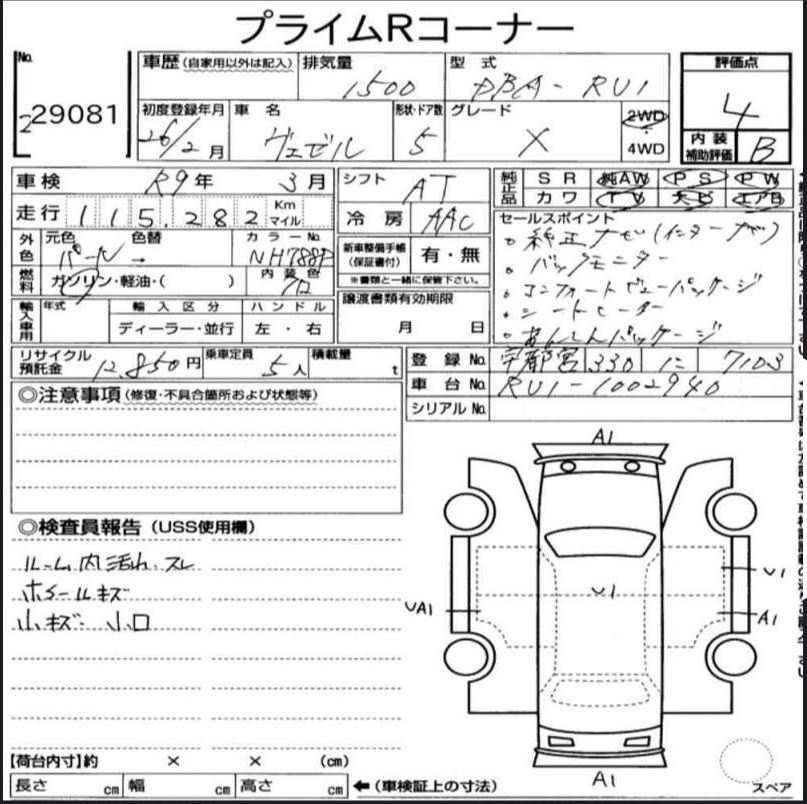 プライムRコーナー
No. 229081
車歴 (自家用以外は記入) 排気量 1500 型式 DBA-RU1
初度登録年月 26/2月 車名 ヴェゼル 形状・ドア数 5 グレード X 2WD 4WD
評価点 4
内装補助評価 B
車検 R9年 3月 シフト AT
走行 115,282 Km マイル 冷房 AAC
純正品 SR 純AW PS PW
カワ TV ナビ エアB
外色 元色 パール 色替 → カラーNo. NH788P
燃料 ガソリン・軽油・( ) 内装色 クロ
新車整備手帳(保証書付) 有・無
※書類と一緒に保管下さい。
輸入車用 年式 輸入区分 ハンドル
ディーラー・並行 左・右
譲渡書類有効期限
月 日
セールスポイント
。純正ナビ(インターナビ)
。バックモニター
。コンフォートビューパッケージ
。シートヒーター
。あんしんパッケージ
リサイクル預託金 12,850円 乗車定員 5人 積載量 t
登録No. 宇都宮 330 に 7103
車台No. RU1-1002940
シリアルNo.
◎注意事項 (修復・不具合箇所および状態等)
◎検査員報告 (USS使用欄)
ルーム内汚れ、スレ
ホイールキズ
小キズ 小凹
A1
U1
UA1
U1
A1
A1
スペア
【荷台内寸】約 × × (cm)
長さ cm 幅 cm 高さ cm ←(車検証上の寸法)